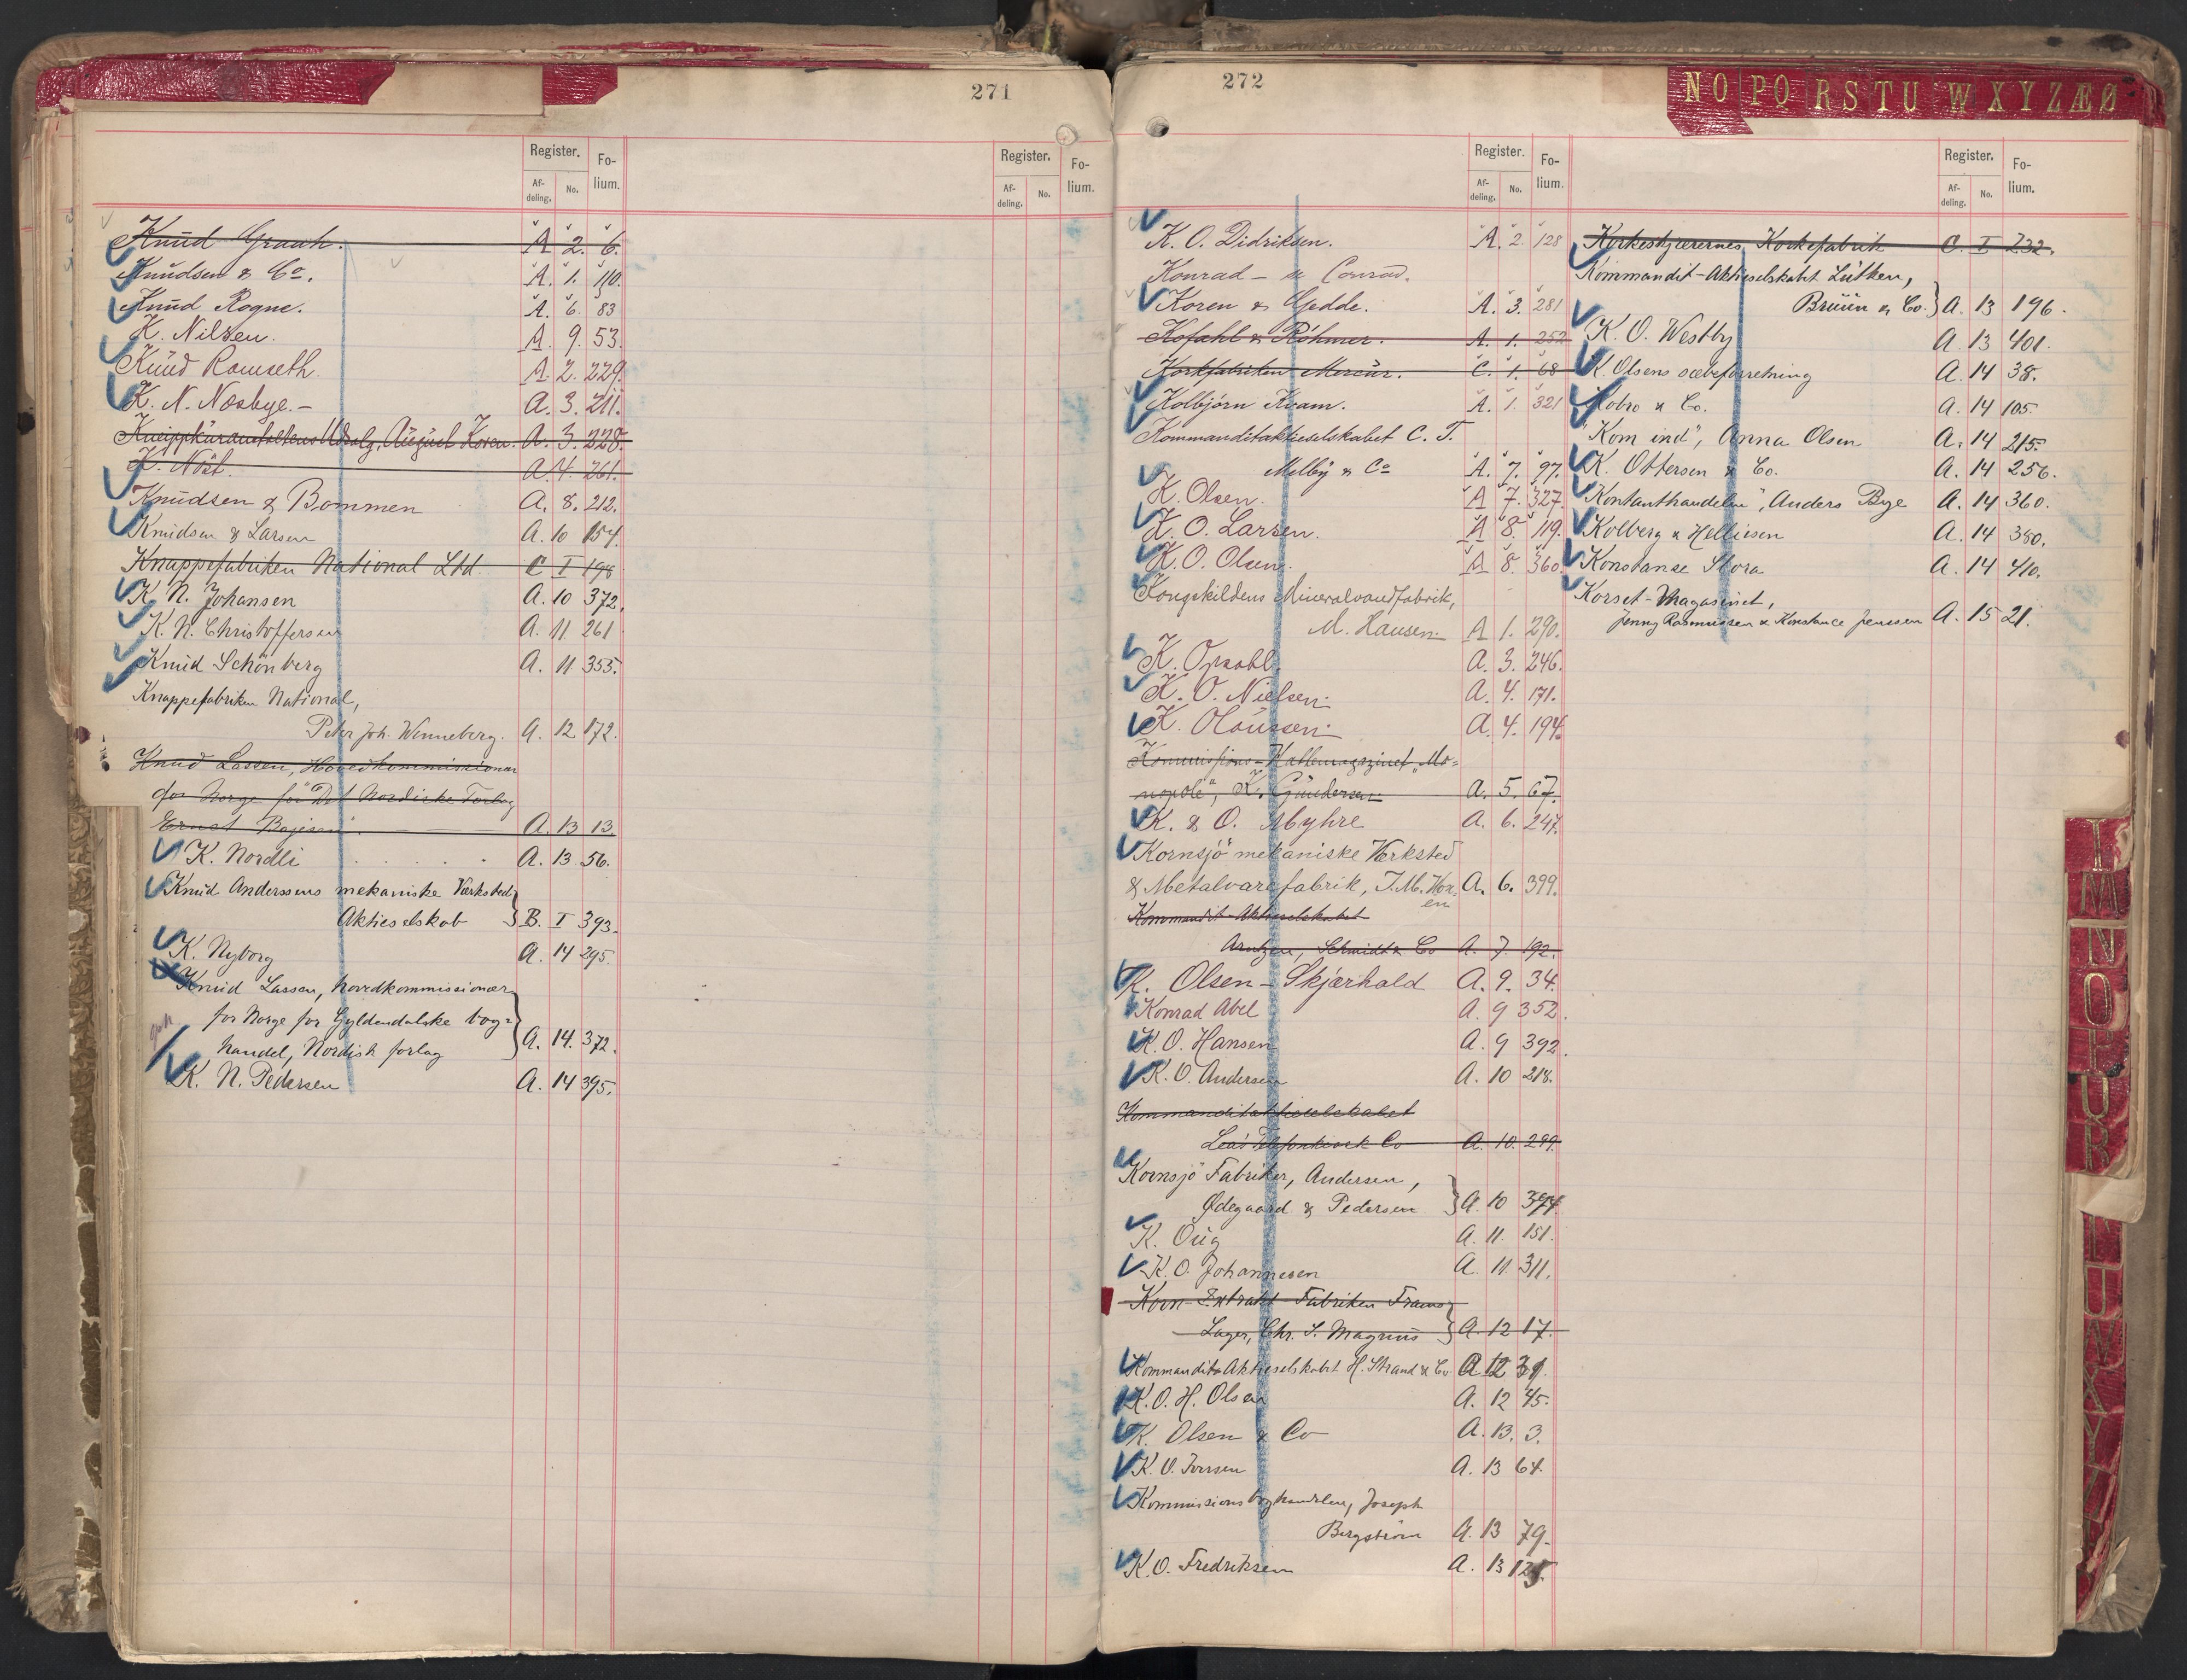 271
Register. Fo-
lium.
Af-
deling. No.
Register. Fo-
lium.
Af-
deling. No.
Knud Graah. A 2. 6.
Knudsen & Co. A. 1. 110.
Knud Rogne. A. 6. 83
K. Nilsen. A. 9. 53.
Knud Ramseth. A. 2. 229.
K. N. Næsbye. - A. 3. 211.
Kneippkuranstaltens Udsalg, August Koren. A. 3. 228.
K. Nöst. A. 4. 261.
Knudsen & Bommen A. 8. 212.
Knudsen & Larsen A. 10 154.
Knappefabriken National Ltd. C I 198
K. N. Johansen A. 10 372.
K. N. Christoffersen A. 11 261
Knud Schönberg A. 11 353.
Knappefabriken National,
Peter Joh. Wenneberg. A. 12 172.
Knud Lassen, Hovedkommissionær
for Norge for "Det Nordiske Forlag
Ernst Bojesen". A. 13 13.
K. Nordli A. 13 56.
Knud Anderssens mekaniske Værksted,
Aktieselskab B. I 393.
K. Nyborg A. 14 295.
Knud Lassen, hovedkommissionær
for Norge for Gyldendalske bog-
handel, Nordisk forlag A. 14. 372.
K. N. Pedersen A. 14 395.
272
N O P Q R S T U W X Y Z Æ Ø
Register. Fo-
lium.
Af-
deling. No.
K. O. Didriksen. A. 2. 128
Konrad - se Conrad.
Koren & Gedde. A. 3. 281
Kofahl & Röhmer. A. 1. 252
Korkfabriken Mercur. C. 1. 68
Kolbjörn Kvam. A. 1. 321
Kommanditaktieselskabet C. T.
Melby & Co A. 7. 97.
K. Olsen. A 7. 327.
K. O. Larsen. A 8. 119.
K. O. Olsen. A 8. 360.
Kongskildens Mineralvandfabrik,
M. Hansen. A 1. 290.
K. Opsahl. A. 3. 246.
K. O. Nielsen. A. 4. 171.
K. Olaussen. A. 4. 194.
Kommissions-Kaffemagazinet „Mo-
nopole", K. Gundersen. A. 5. 67.
K. & O. Myhre A. 6. 247.
Kornsjö mekaniske Værksted
& Metalvarefabrik, J. M. Kor- A. 6. 399.
en
Kommandit-Aktieselskabet
Arntzen, Schmidt & Co A. 7. 192.
K. Olsen-Skjærhald A. 9. 34.
Konrad Abel A. 9 352.
K. O. Hansen A. 9 392.
K. O. Andersen A. 10 218.
Kommanditaktieselskabet
Co A. 10. 299.
Kornsjö Fabriker, Andersen,
Ødegaard & Pedersen A. 10 394.
K. Oug A. 11. 151.
K. O. Johannesen A. 11. 311.
Korn-Extrakt-Fabriken Frams
Lager, Chr. S. Magnus A. 12 17.
Kommandit Aktieselskabet H. Strand & Co A 12 31.
K. O. H. Olsen A. 12 45.
K. Olsen & Co A. 13. 3.
K. O. Iversen A. 13 64.
Kommissionsboghandelen, Joseph
Bergström A. 13 79.
K. O. Fredriksen A. 13 125.
Register. Fo-
lium.
Af-
deling. No.
Korkeskjærernes Korkefabrik C. I 232.
Kommandit-Aktieselskabet Lütken,
Bruun & Co. A. 13 196.
K. O. Westby A. 13 401.
K. Olsens sæbeforretning A. 14 38.
Kobro & Co. A. 14 105.
"Kom ind", Anna Olsen A. 14 215.
K. Ottersen & Co. A. 14 256.
"Kontanthandelen", Anders Bye A. 14 360.
Kolberg & Helliesen A. 14 380.
Konstanse Slora A. 14 410.
Korset-Magasinet,
Jenny Rasmussen & Konstance Jenssen A. 15 21.